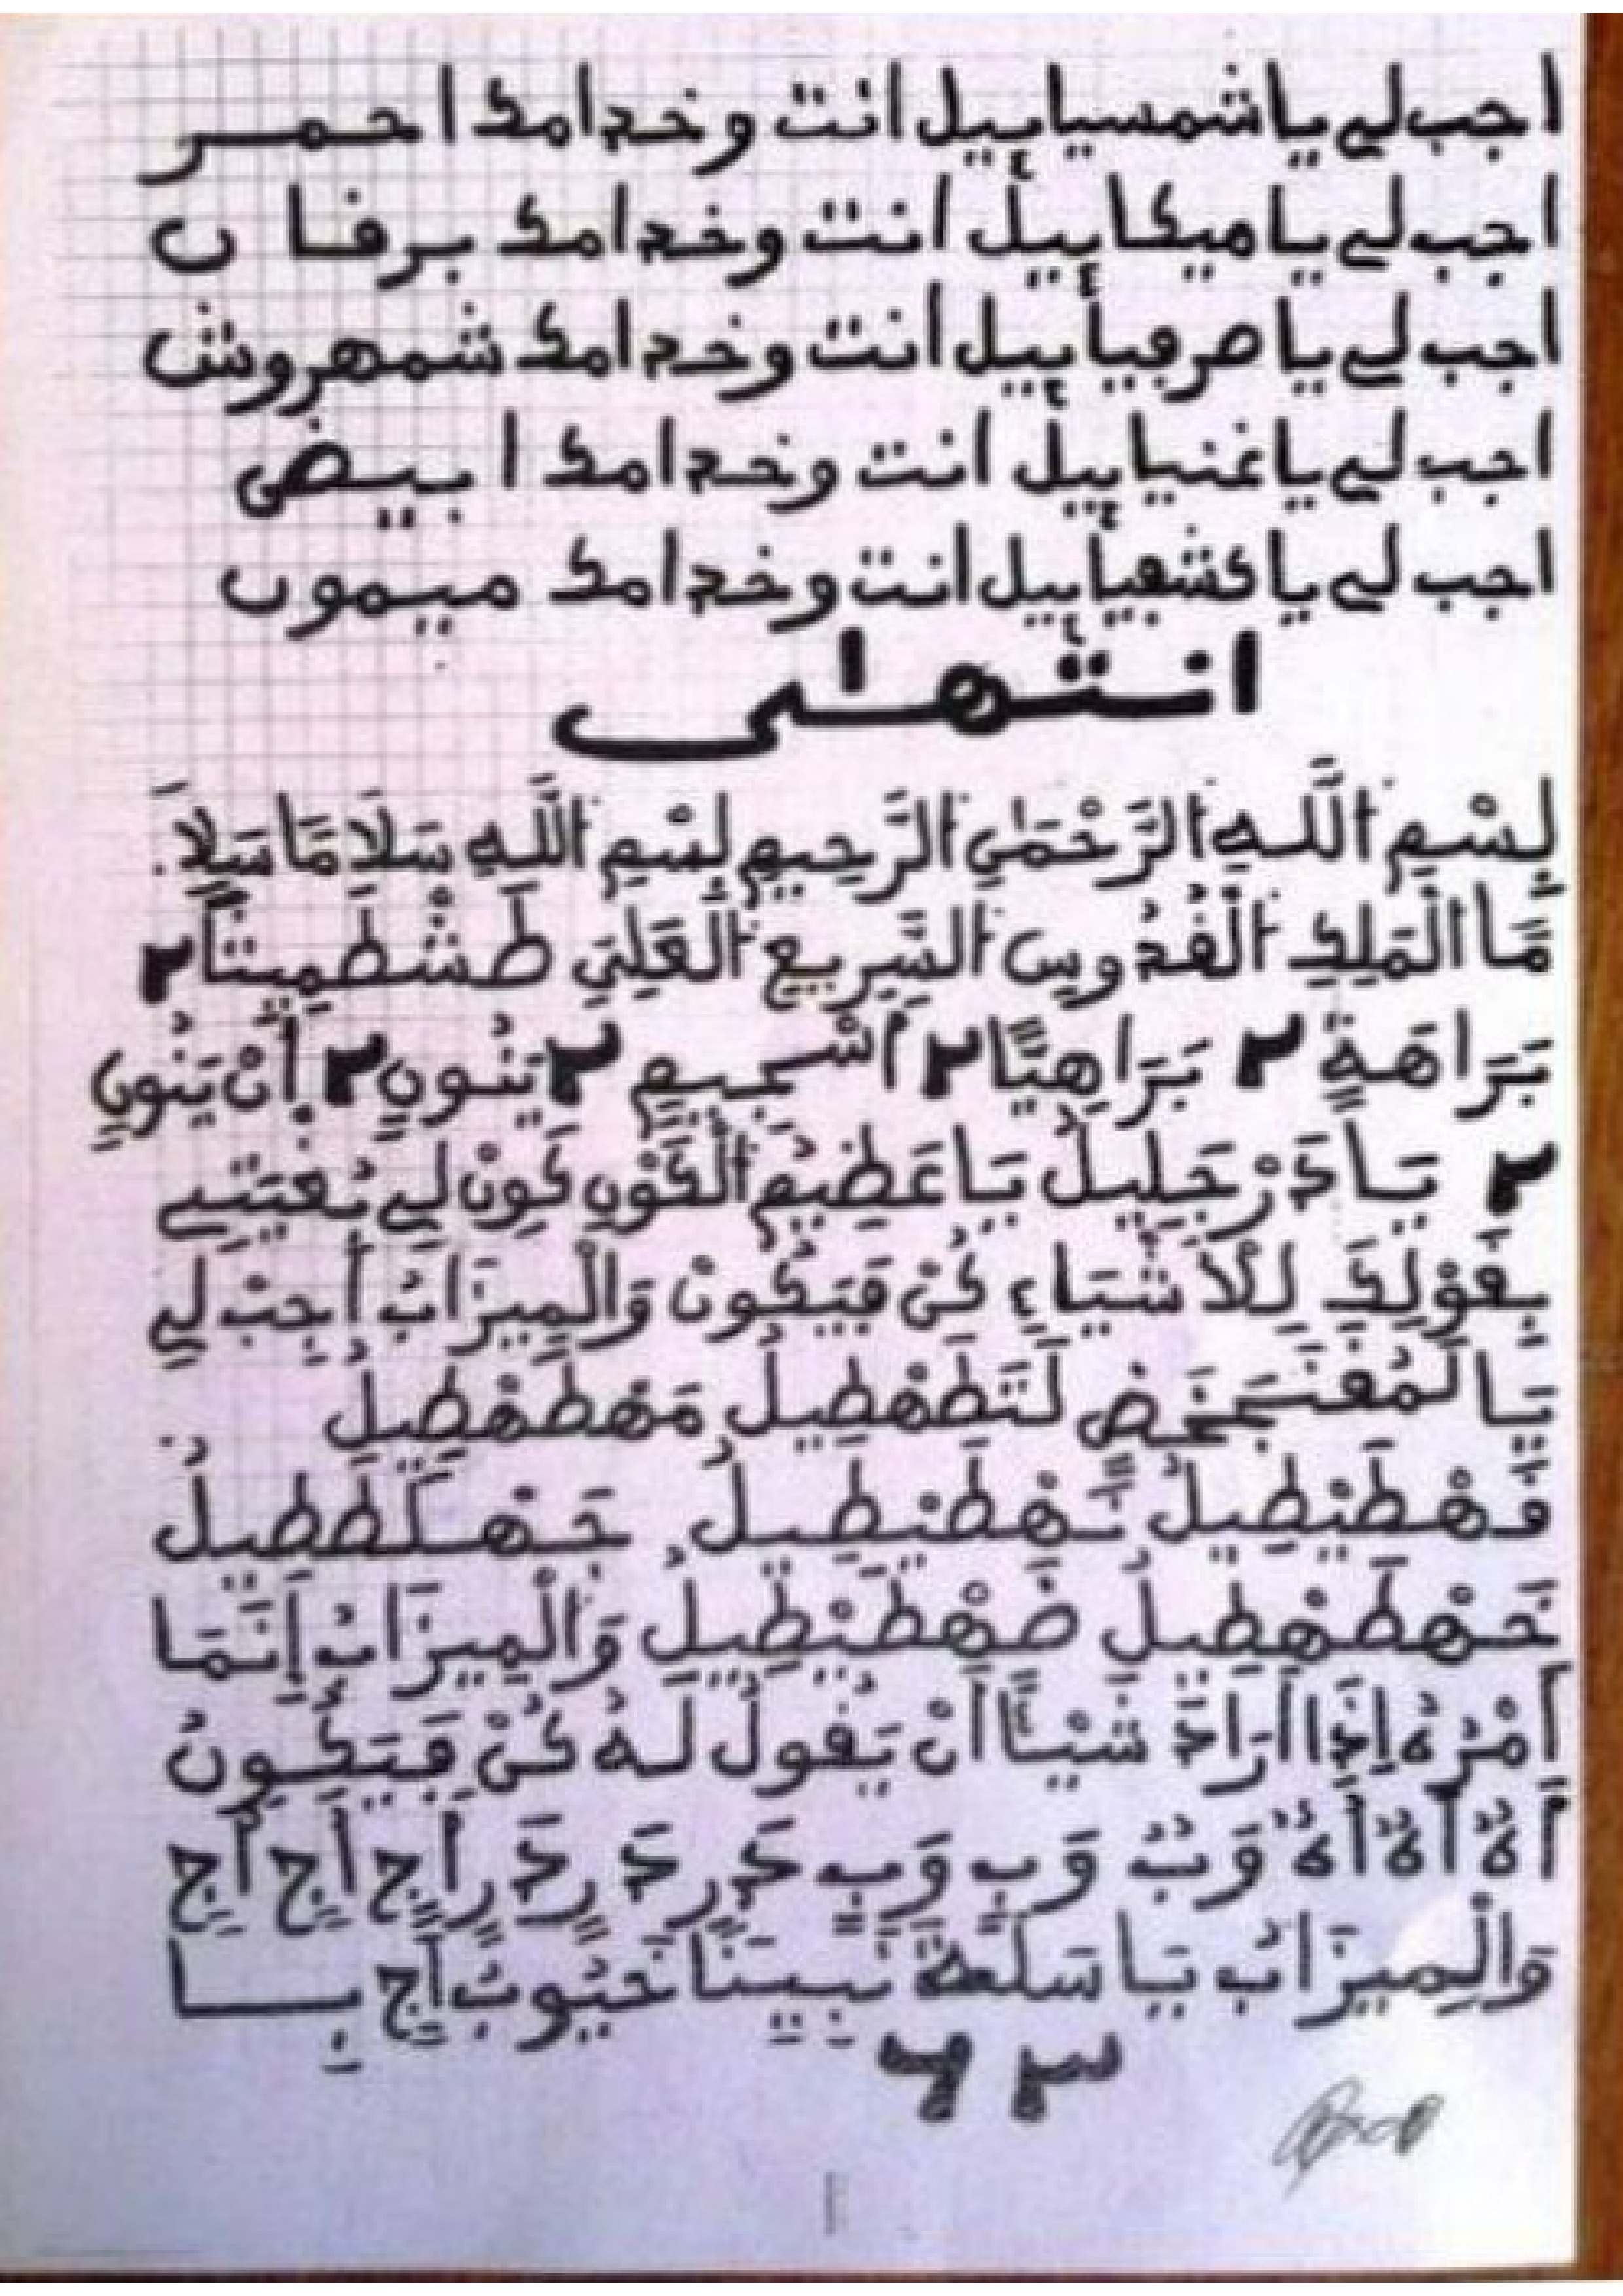 اجب لي يا شمسيائيل انت وخدامك احمر
اجب لي يا ميكائيل انت وخدامك برقان
اجب لي يا صرفيائيل انت وخدامك شمهروش
اجب لي يا عنيائيل انت وخدامك ابيض
اجب لي يا كشفيائيل انت وخدامك ميمون
انتهى
بِسْمِ اللَّهِ الرَّحْمَٰنِ الرَّحِيمِ بِسْمِ اللَّهِ سَلَامًا سَلَا
مًا الْمَلِكِ الْقُدُّوسِ السَّرِيعِ الْعَلِيِّ طَشْطَمِيتًا ٢
بَرَاهَةٍ ٢ بَرَاهِيًّا ٢ اشْمِيمٍ ٢ يَنُونٍ ٢ أَنْ يَنُونٍ
٢ يَا دَرْ جَلِيلُ يَا عَظِيمُ الْكَوْنِ كَوِنْ لِي بُغْيَتِي
بِقَوْلِكَ لِلْأَشْيَاءِ كُنْ فَيَكُونُ وَالْمِيزَابُ أَجِبْ لِي
يَا لَتَطَهْطِيلُ مَهْطَهْطِيلُ
فَهْطَيْطِيلُ نَهْطَيْطِيلُ جَهْلَطَطِيلُ
خَهْطَهْطِيلُ ضَهْطَيْطِيلُ وَالْمِيزَابُ إِنَّمَا
أَمْرُهُ إِذَا أَرَادَ شَيْئًا أَنْ يَقُولَ لَهُ كُنْ فَيَكُونُ
أَهٌ أَهٌ أَهٌ وَبٌ وَبٍ وَبٍ دَرٍ دَرٍ أَجٍ أَجٍ أَجٍ
وَالْمِيزَابُ يَا سَلْعَةً أَجٍ بَا
٢ ٦